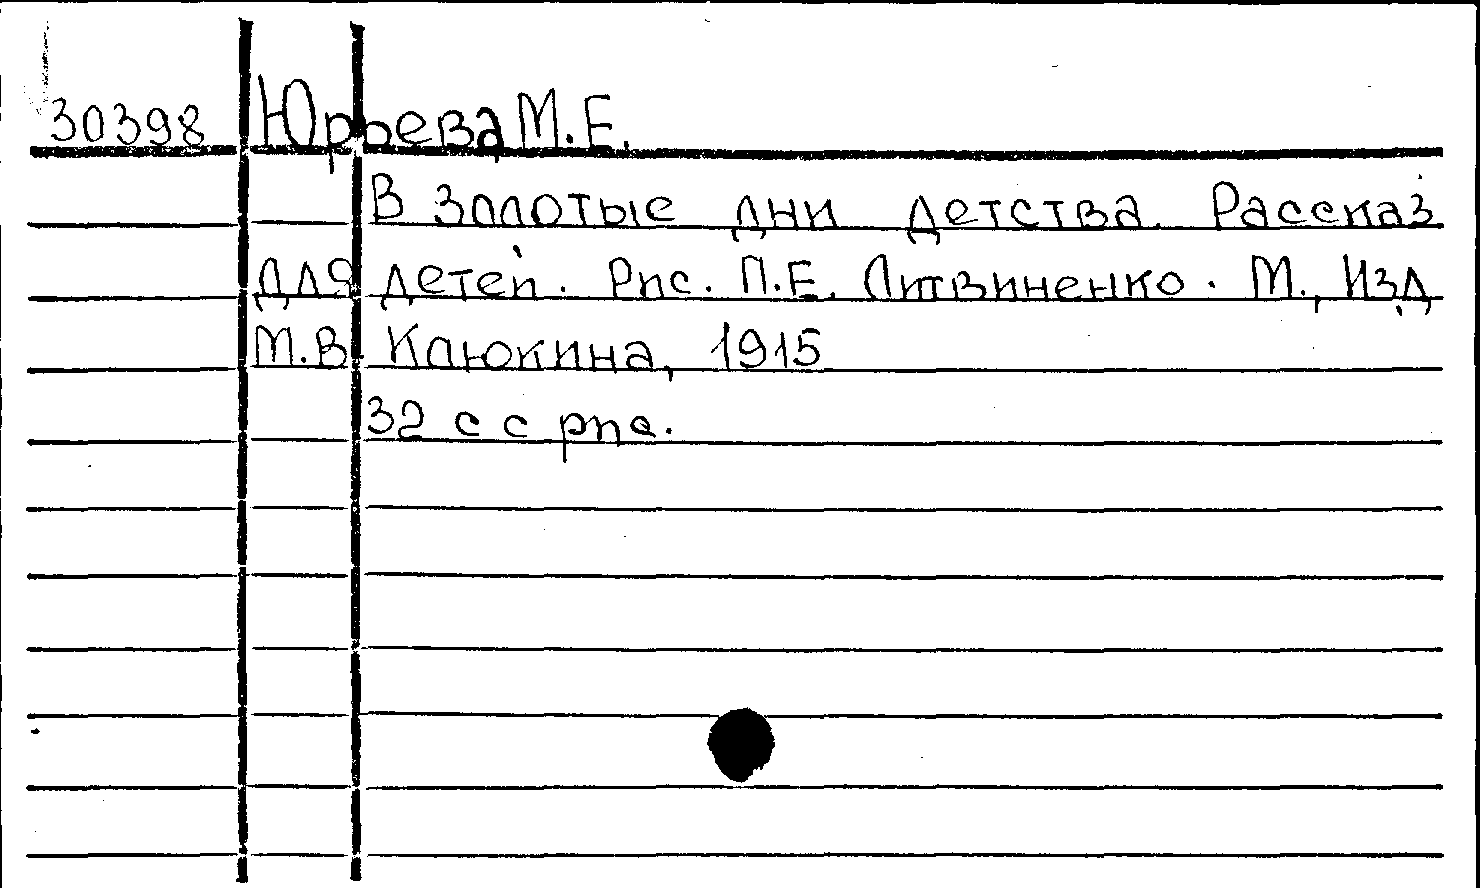 30398 Юрьева М. Е.
В золотые дни детства. Рассказ
для детей. Рис. П. Е. Литвиненко. М., Изд.
М. В. Клюкина, 1915
32 с с рис.